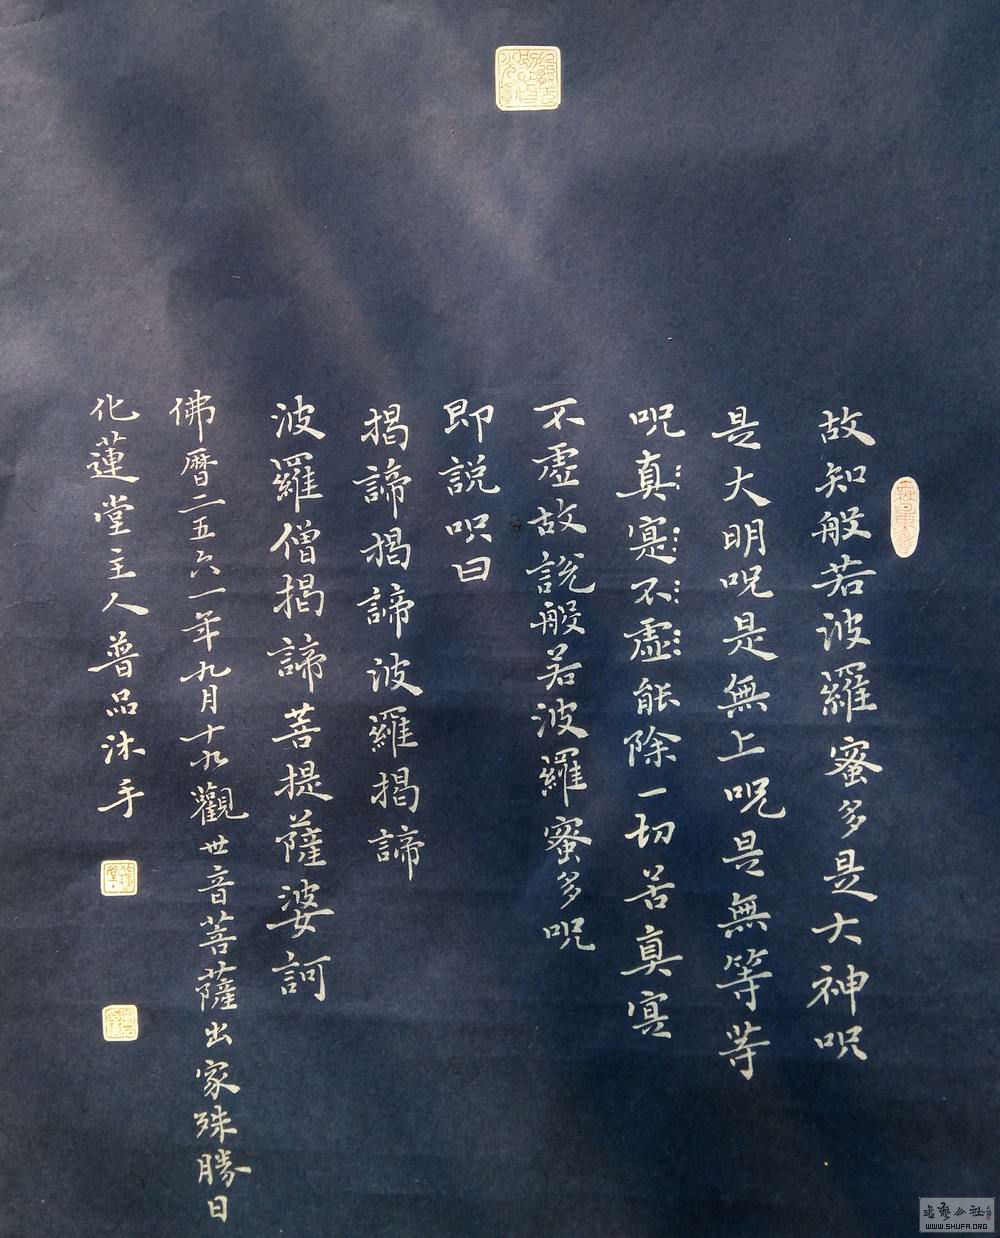 故知般若波羅蜜多是大神呪
是大明呪是無上呪是無等等
呪真寔不虛能除一切苦真寔
不虛故說般若波羅蜜多呪
即説呪曰
揭諦揭諦波羅揭諦
波羅僧揭諦菩提薩婆訶
佛曆二五六一年九月十九觀世音菩薩出家殊勝日
化蓮堂主人普品沐手
WWW.SHUFA.ORG